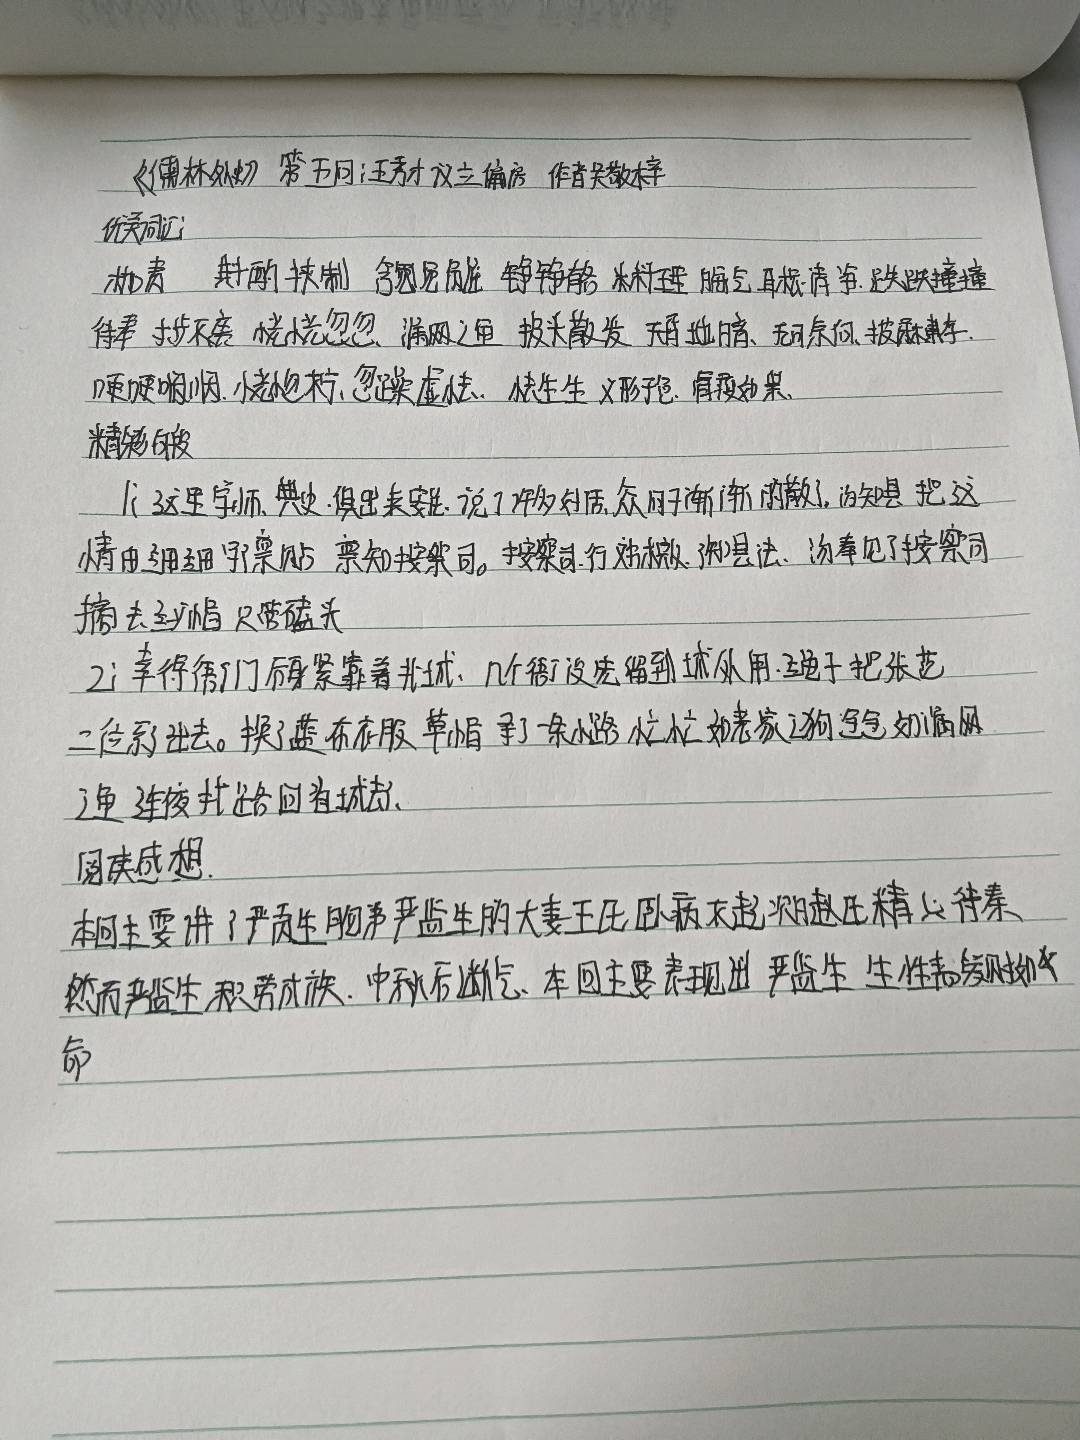 《儒林外史》 第五回：王秀才议立偏房 作者吴敬梓
优美词汇：
枷责 斟酌 挟制 含冤负屈 铮铮 料理 胸 耳根清净 跌跌撞撞
侍奉 寸步不离 恍恍忽忽、漏网之鱼 披头散发 天昏地暗、无可奈何、披麻戴孝.
哽哽咽咽.
精彩
1：这里学师、典史·俱出来安民. 说了许多好话,众回子渐渐的散了,汤知县 把这
情由细细写 禀知按察司。按察司行文书檄了知县去、汤奉见了按察司
摘去纱帽 只管磕头
2：幸得衙门后身紧靠着北城、几个衙役先溜到城外用绳子 把张范
二位系了出去。换了蓝布衣服 草帽 寻了一条小路 忙忙如丧家之狗 急急如漏网
之鱼 连夜找路回省城去、
阅读感想.
本回主要讲了严贡生胞弟严监生的大妻王氏卧病不起 赵氏精心侍奉
然而严监生积劳成疾. 中秋后断气、本回主要表现出 严监生 生性
命